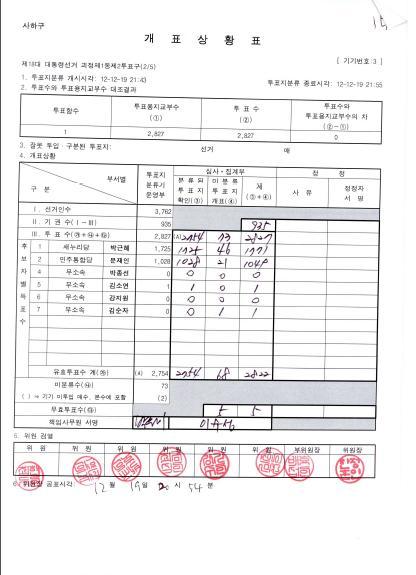 사하구
15
개 표 상 황 표
[ 기기번호 : 3 ]
제18대 대통령선거 괴정제1동제2투표구(2/5)
1. 투표지분류 개시시각: 12-12-19 21:43
투표지분류 종료시각: 12-12-19 21:55
2. 투표수와 투표용지교부수 대조결과
투표함수 투표용지교부수 (①) 투 표 수 (②) 투표수와 투표용지교부수의 차 (②-①)
1 2,827 2,827 0
3. 잘못 투입·구분된 투표지: 선거 매
4. 개표상황
구 분 부서별 투표지 분류기 운영부 심사·집계부 정 정
분류된 투표지 확인(③) 미분류 투표지 개표(④) 계 (③+④) 사 유 정정자 서 명
Ⅰ. 선거인수 3,762
Ⅱ. 기 권 수 (Ⅰ-Ⅲ) 935 935
Ⅲ. 투 표 수 2,827 2754 73 2827
후보자별득표수
1 새누리당 박근혜 1,725 1725 46 1771
2 민주통합당 문재인 1,028 1028 21 1049
4 무소속 박종선 0 0 0 0
5 무소속 김소연 1 1 0 1
6 무소속 강지원 0 0 0 0
7 무소속 김순자 0 0 1 1
유효투표수 계 (4) 2,754 2754 68 2822
미분류수 73
( ) = 기기 미투입 매수, 본수에 포함 (2)
무효투표수 5 5
책임사무원 서명
5. 위원 검열
위 원 위 원 위 원 위 원 위 원 위 원 부위원장 위원장
6. 위원장 공표시각: 12 월 19 일 20 시 54 분